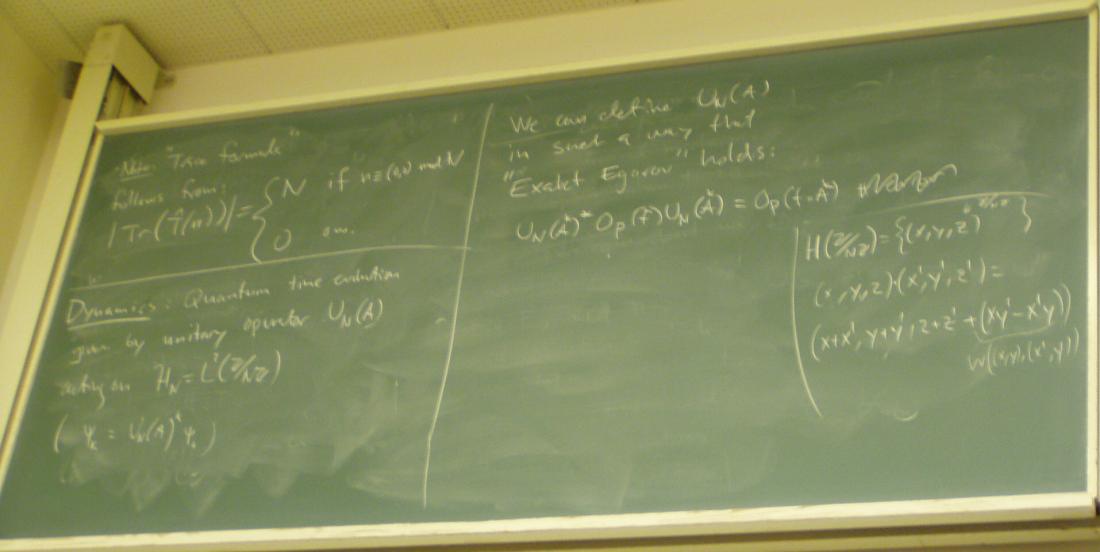 Note: "Trace formula"
follows from:
|Tr(T̂(n))| = { N if n≡(0,0) mod N
0 o.w.
Dynamics: Quantum time evolution
given by unitary operator U_N(A)
acting on H_N = L²(Z/NZ)
= U_N(A)
We can define U_N(A)
in such a way that
"Exakt Egorov" holds:
U_N(A)* Op(f) U_N(A) = Op(f∘A)
H(Z/NZ) = {(x,y,z)}
(x,y,z)·(x',y',z') =
(x+x', y+y', z+z'+(xy'-x'y))
w((x,y),(x',y))